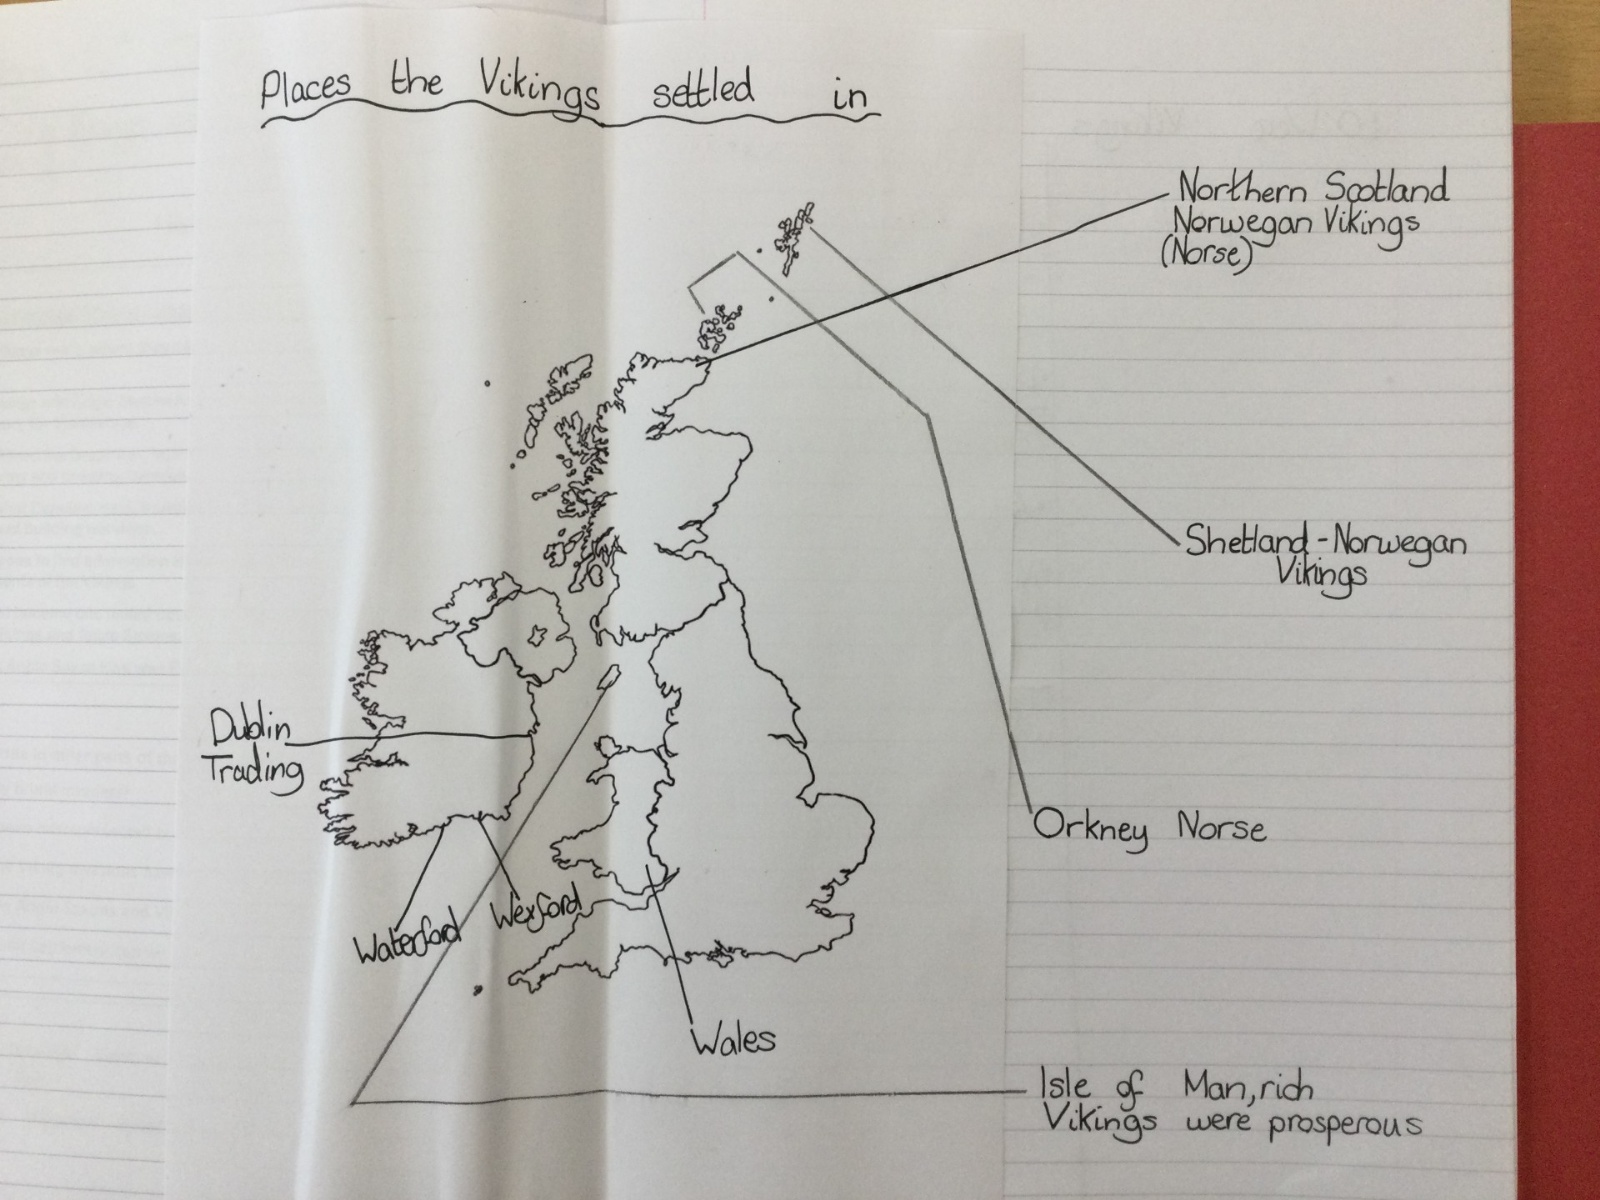 Places the Vikings settled in
Northern Scotland
Norwegan Vikings
(Norse)
Shetland - Norwegan
Vikings
Dublin
Trading
Orkney Norse
Wexford
Waterford
Wales
Isle of Man, rich
Vikings were prosperous